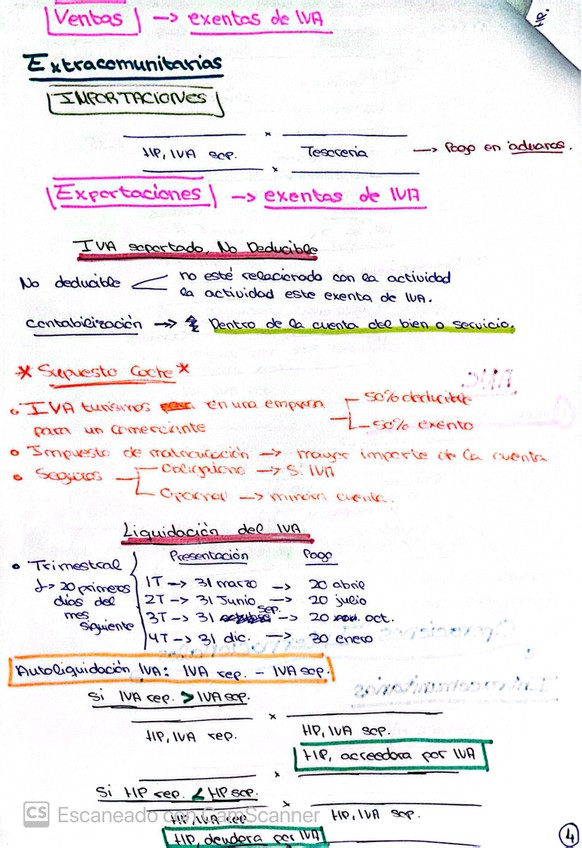 Ventas → exentas de IVA
Extracomunitarias
IMPORTACIONES
HP, IVA sop. Tesorería → Pago en aduanas.
Exportaciones → exentas de IVA
IVA soportado, No Deducible
No deducible no esté relacionado con la actividad
la actividad este exenta de IVA.
Contabilización → Dentro de la cuenta del bien o servicio.
* Supuesto Coche *
• IVA turismos en una empresa 50% deducible
para un comerciante 50% exento
• Impuesto de matriculación → mayor importe de la cuenta
• Seguros Obligatorio → Si IVA
Opcional → cuenta.
Liquidación del IVA
• Trimestral Presentación Pago
↳ 20 primeros 1T → 31 marzo → 20 abril
días del 2T → 31 Junio → 20 julio
mes 3T → 31 sep. → 20 oct.
siguiente 4T → 31 dic. → 30 enero
Autoliquidación IVA: IVA rep. - IVA sop.
Si IVA rep. > IVA sop.
HP, IVA rep. HP, IVA sop.
HP, acreedora por IVA
Si HP rep. < HP sop.
HP, IVA rep HP, IVA sop.
HP, deudora por IVA
CS Escaneado con CamScanner
4